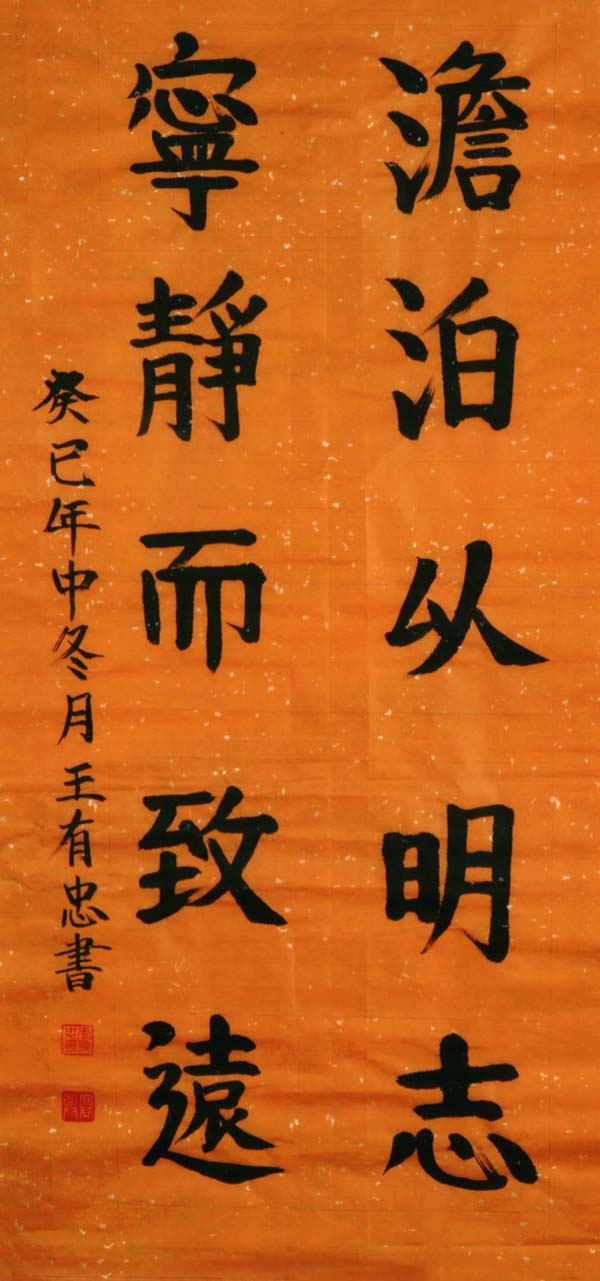 澹泊以明志
寧靜而致遠
癸巳年中冬月王有忠書